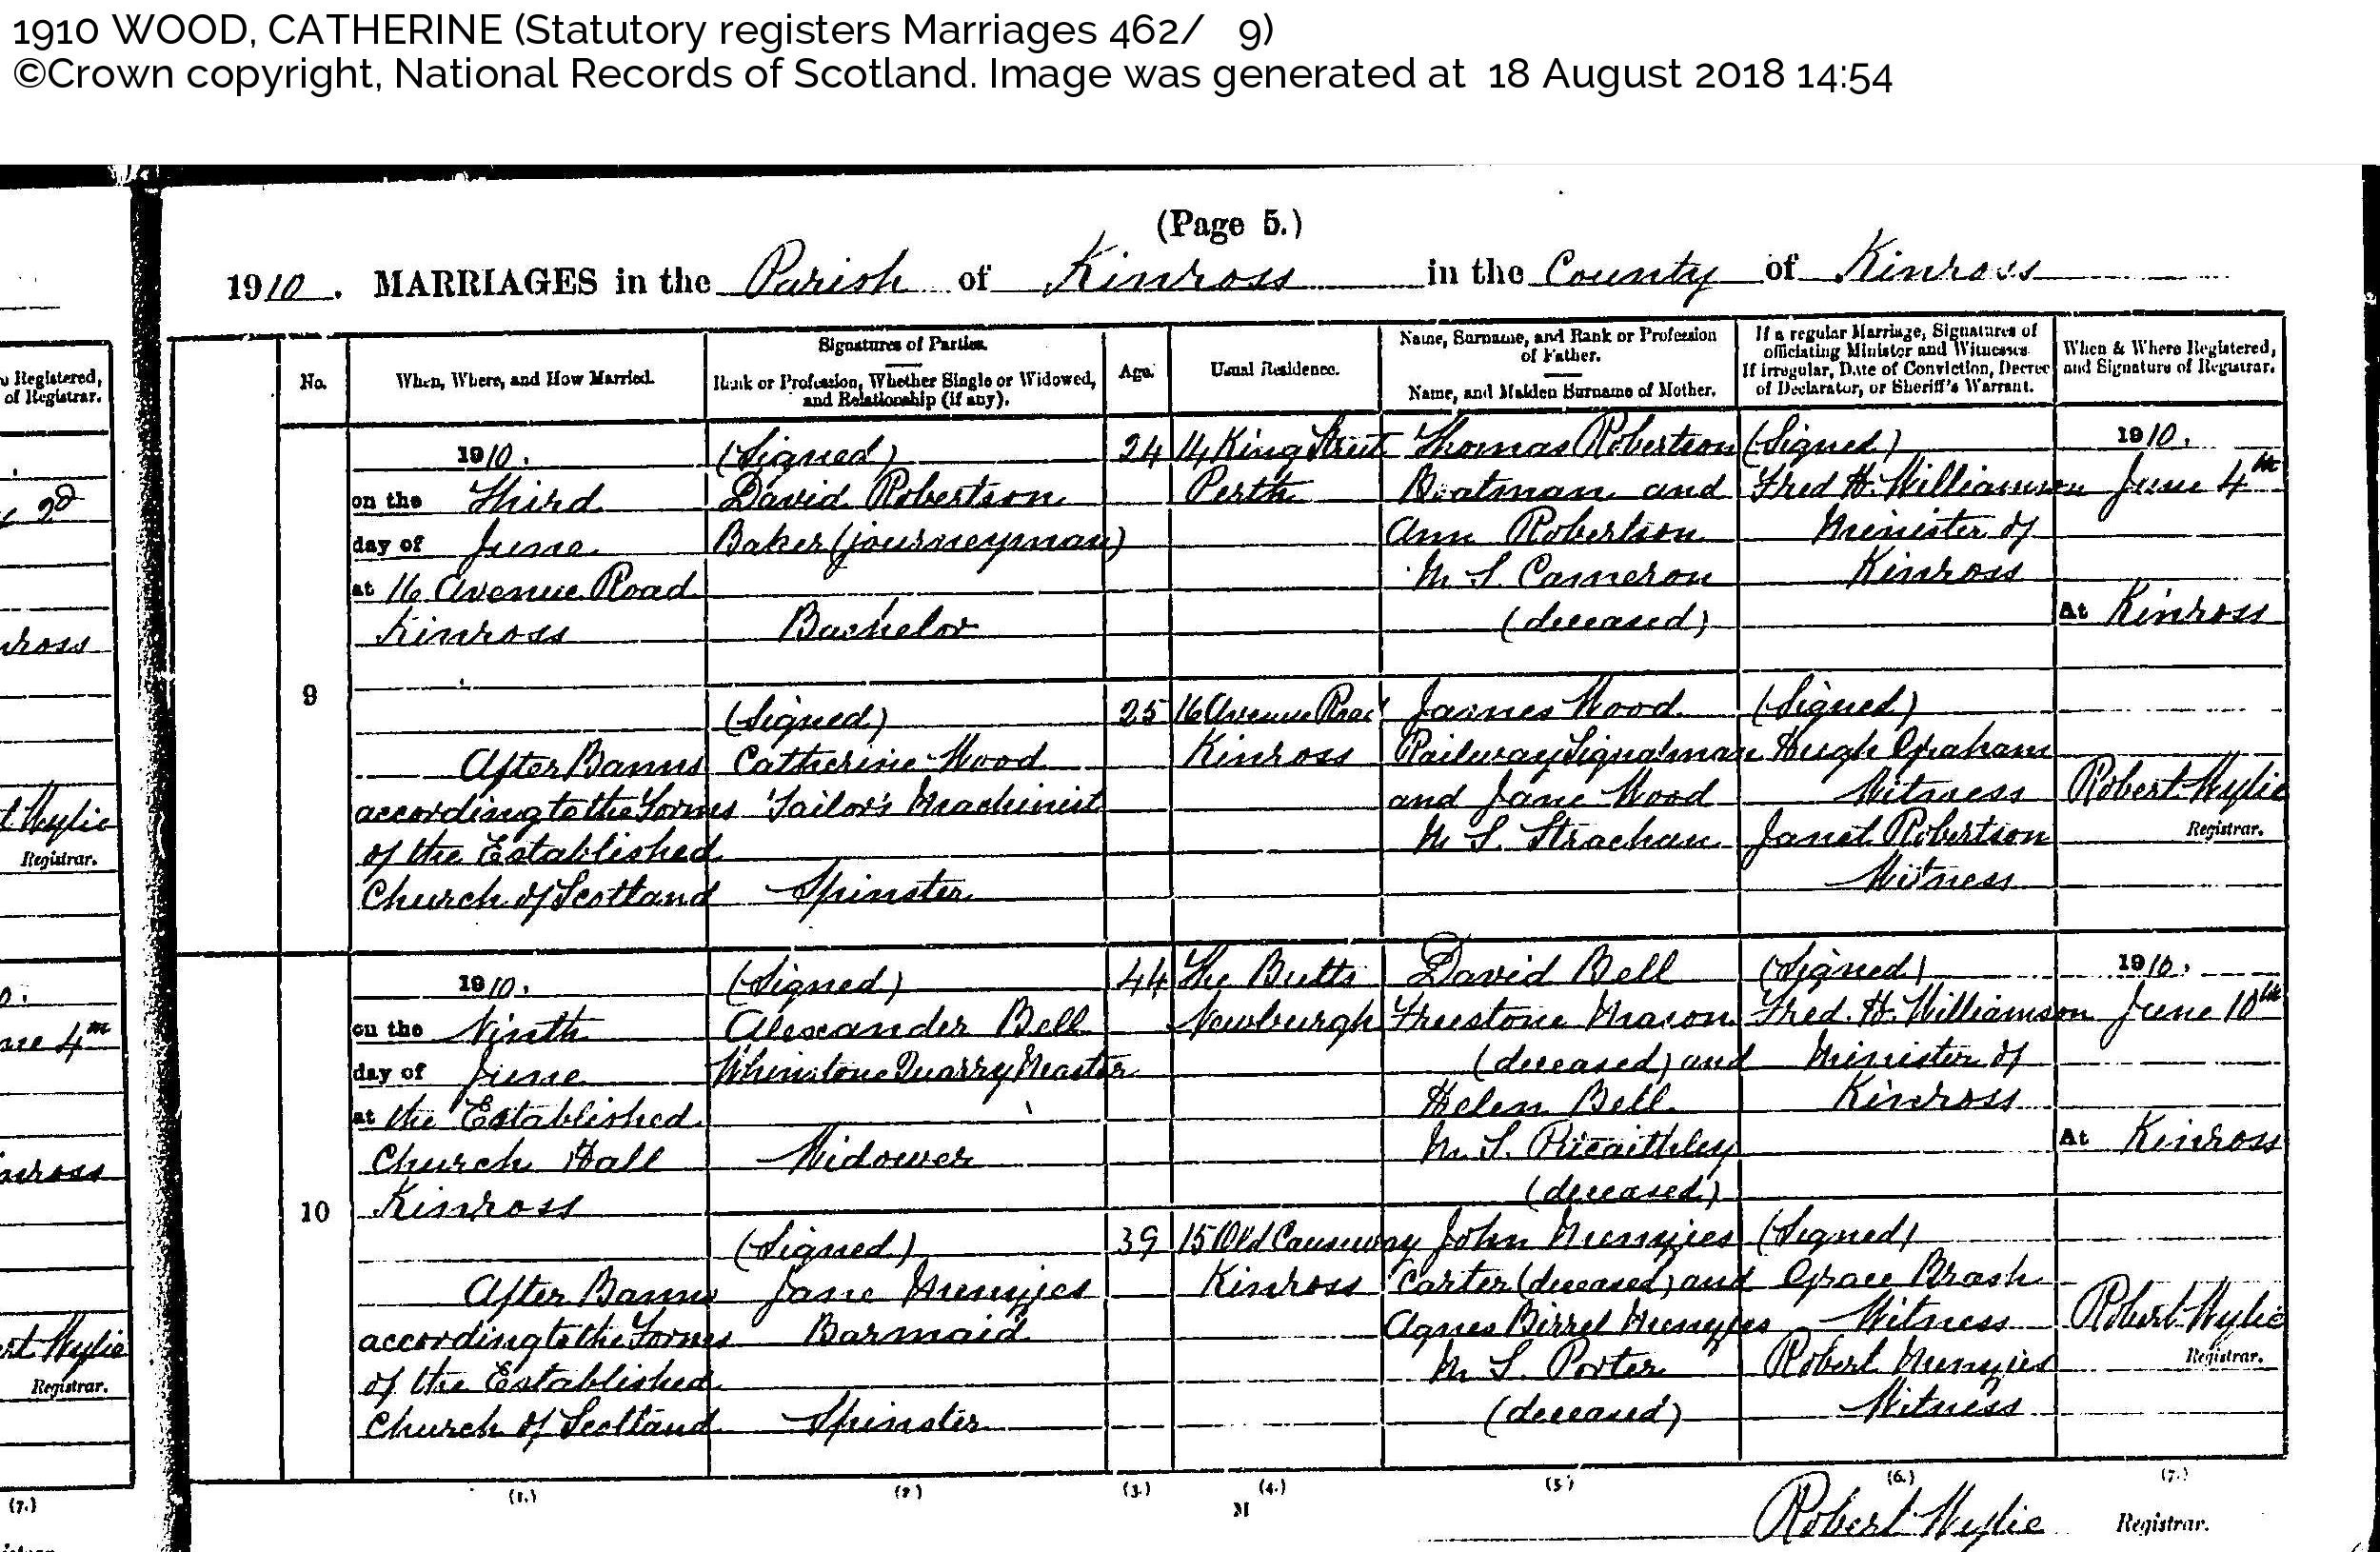 1910 WOOD, CATHERINE (Statutory registers Marriages 462/ 9)
©Crown copyright, National Records of Scotland. Image was generated at 18 August 2018 14:54
(Page 5.)
1910. MARRIAGES in the Parish of Kinross in the County of Kinross
No.
When, Where, and How Married.
Signatures of Parties.
Rank or Profession, Whether Single or Widowed,
and Relationship (if any).
Age.
Usual Residence.
Name, Surname, and Rank or Profession
of Father.
Name, and Maiden Surname of Mother.
If a regular Marriage, Signatures of
officiating Minister and Witnesses.
If irregular, Date of Conviction, Decree
of Declarator, or Sheriff's Warrant.
When & Where Registered,
and Signature of Registrar.
9
1910.
on the Third
day of June
at 16 Avenue Road
Kinross
After Banns
according to the Forms
of the Established
Church of Scotland
(Signed)
David Robertson
Baker (journeyman)
Bachelor
(Signed)
Catherine Wood
Tailor's Machinist
Spinster
24
25
14 King Street
Perth
16 Avenue Road
Kinross
Thomas Robertson
Boatman and
Ann Robertson
M. S. Cameron
(deceased)
James Wood
Railway Signalman
and Jane Wood
M. S. Strachan
(Signed)
Fred H. Williamson
Minister of
Kinross
(Signed)
Hugh Graham
Witness
Janet Robertson
Witness
1910.
June 4th
At Kinross
Robert Wylie
Registrar.
10
1910.
on the Ninth
day of June
at the Established
Church Hall
Kinross
After Banns
according to the Forms
of the Established
Church of Scotland
(Signed)
Alexander Bell
Whinstone Quarry Master
Widower
(Signed)
Jane Menzies
Barmaid
Spinster
44
39
The Butts
Newburgh
15 Old Causeway
Kinross
David Bell
Freestone Mason
(deceased) and
Helen Bell
M. S. Picaithley
(deceased)
John Menzies
Carter (deceased) and
Agnes Birrel Menzies
M. S. Porter
(deceased)
(Signed)
Fred. H. Williamson
Minister of
Kinross
(Signed)
Grace Brash
Witness
Robert Menzies
Witness
1910.
June 10th
At Kinross
Robert Wylie
Registrar.
(1.) (2.) (3.) (4.) (5.) (6.) (7.)
M
Robert Wylie Registrar.